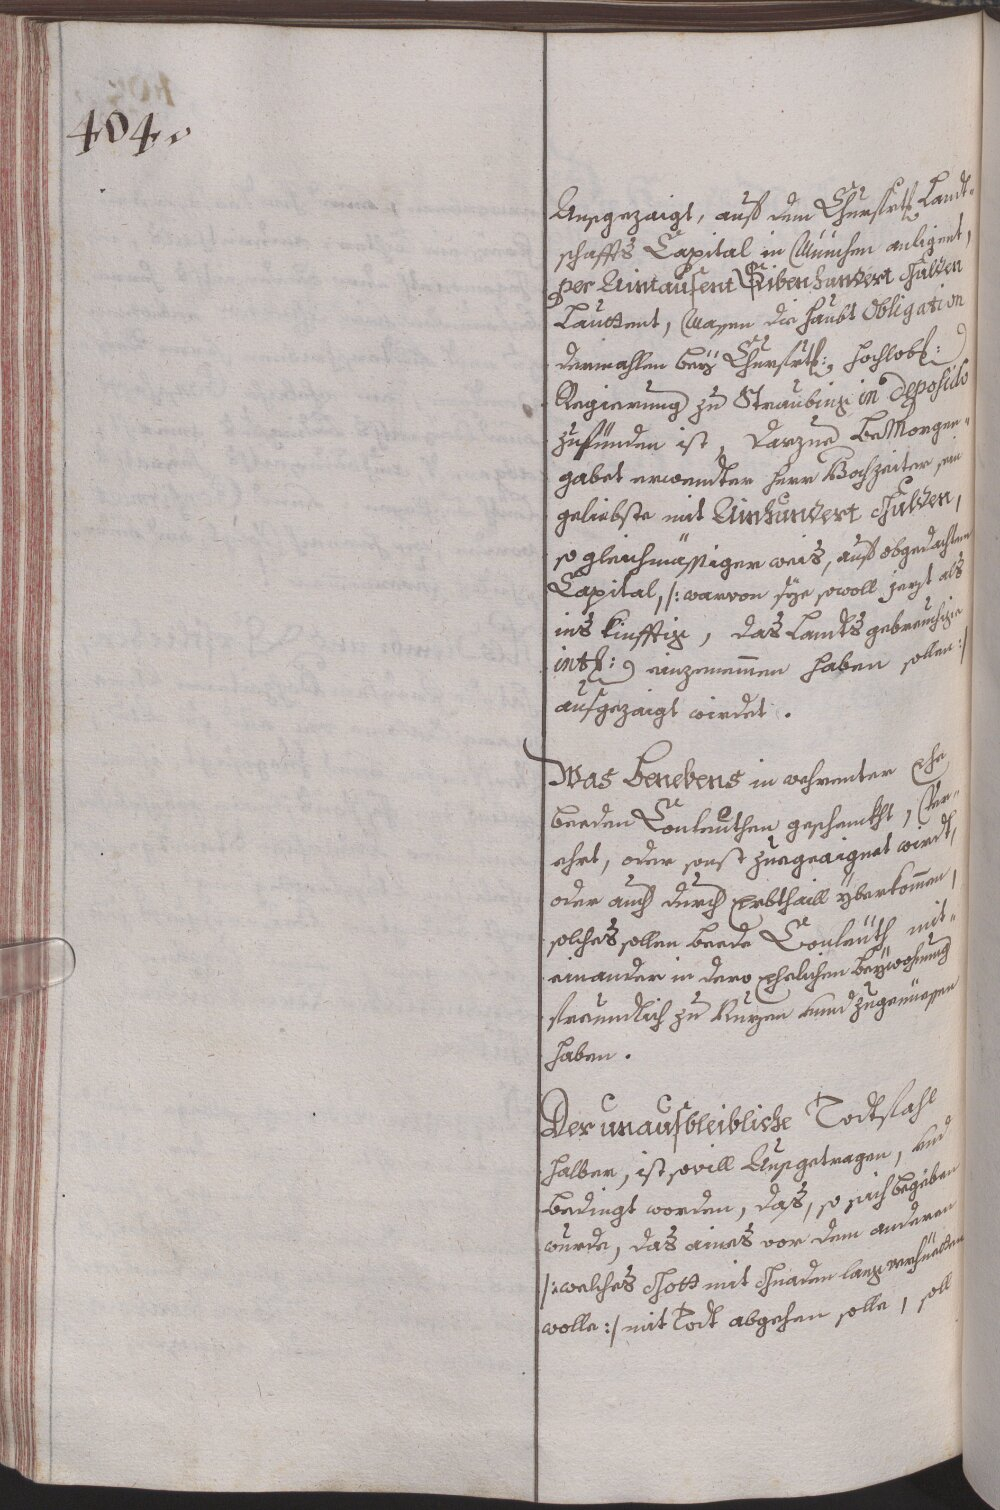 404.
Ausgezaigt, auß dem Churfrtl: Landt-
schaffts Capital in München anligent,
per Aintausent Sibenhundert Gulden
Lauttent, Massen die haubt Obligation
dermahlen beÿ Churfrtl: hochlobl:
Regierung zu Straubing in Deposito
zufünden ist, darzue beMorgen-
gabet ernendter herr Hochzeiter sein
geliebste mit Ainhundert Gulden,
so gleichmässiger weis, auß obgedachten
Capital, /: warvon sÿe sowoll jezt als
ins künfftig, das Landts gebreuchige
intß: einzenemmen haben sollen :/
ausgezaigt wirdet.
Was benebens in wehrenter Ehe
beeden Conleuthen geschenkht, Ver-
ehrt, oder sonst zuegeaignet wirdt,
oder auch durch Erbthaill yberkommen,
solches sollen beede Conleuth mit-
einander in dero Ehelichen beÿwohnung
freundlich zu Nuzen unnd zugenüessen
haben.
Der unausbleibliche Todtfahl
halber, ist sovill Ausgetragen, und
bedingt worden, daß, so sich begeben
wurde, das aines vor dem anderen
/: welches Gott mit Gnaden lang verhüetten
wolle :/ mit Todt abgehen solle, soll